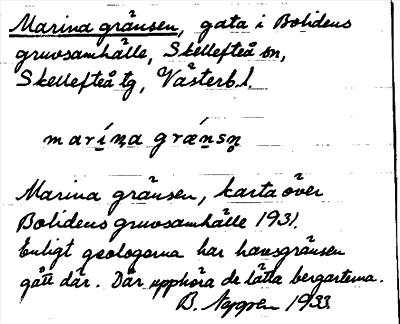 Marina gränsen, gata i Bolidens
gruvsamhälle, Skellefteå sn,
Skellefteå tg, Västerb. l.
marína grǽnsn̥
Marina gränsen, karta över
Bolidens gruvsamhälle 1931.
Enligt geologerna har havsgränsen
gått där. Där upphöra de lätta bergarterna.
B. 1933.